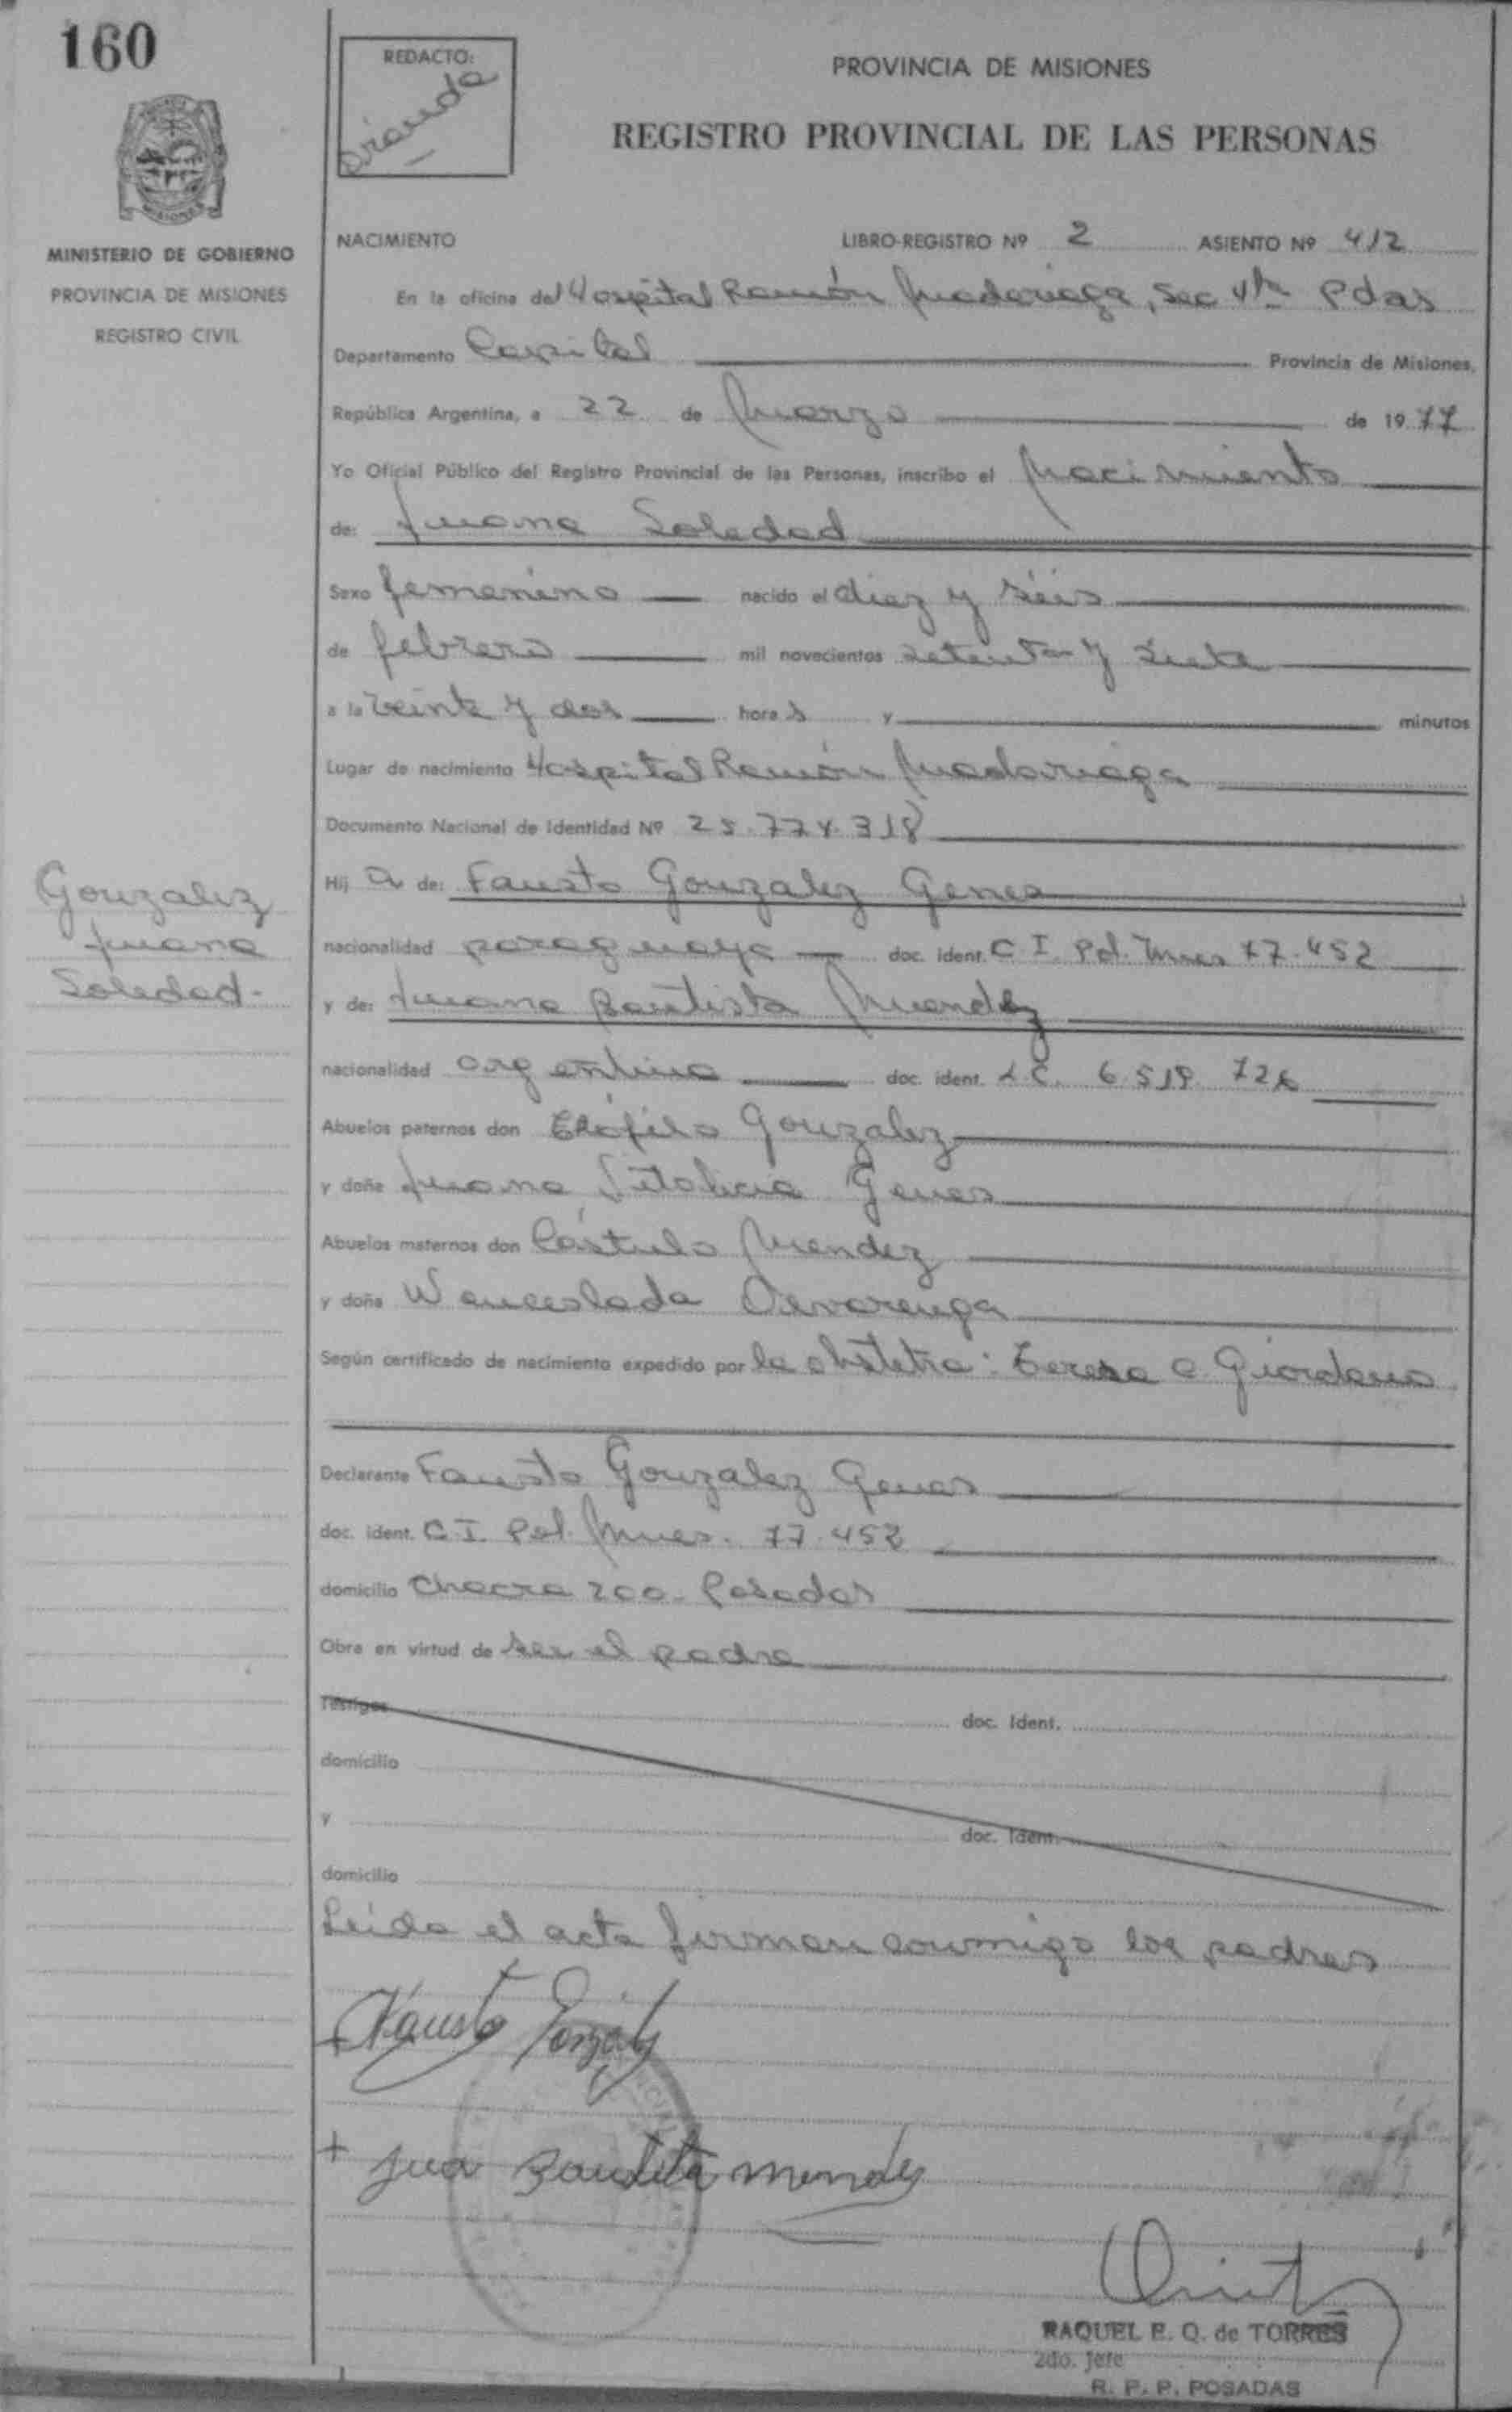 160
REDACTO:
Miranda
PROVINCIA DE MISIONES
REGISTRO PROVINCIAL DE LAS PERSONAS
MINISTERIO DE GOBIERNO
PROVINCIA DE MISIONES
REGISTRO CIVIL
NACIMIENTO LIBRO-REGISTRO Nº 2 ASIENTO Nº 412
En la oficina del Hospital Ramón Madariaga, Sec 4ta Pdas
Departamento Capital Provincia de Misiones,
República Argentina, a 22 de Marzo de 1977
Yo Oficial Público del Registro Provincial de las Personas, inscribo el Nacimiento
de: Juana Soledad
Sexo femenino nacido el diez y séis
de febrero mil novecientos setenta y siete
a la veinte y dos hora s y minutos
Lugar de nacimiento Hospital Ramón Madariaga
Documento Nacional de Identidad Nº 25.774.318
Hij a de: Fausto Gonzalez Genes
Gonzalez
Juana
Soledad.-
nacionalidad paraguaya doc. ident. C I. Pol. Mnes 77.452
y de: Juana Bautista Mendez
nacionalidad argentina doc. ident. L C. 6.519.726
Abuelos paternos don Gonzalez
y doña Juana Genes
Abuelos maternos don Cástulo Mendez
y doña Wenceslada
Según certificado de nacimiento expedido por la obstetra: Teresa C. Giordano
Declarante Fausto Gonzalez Genes
doc. ident. C.I. Pol. Mnes. 77.452
domicilio Chacra 200- Posadas
Obra en virtud de ser el padre
Testigos doc. Ident.
domicilio
y doc. Ident.
domicilio
Leida el acta firman conmigo los padres
Fausto Gonzalez
+ Jua Bautita mendez
RAQUEL E. Q. de TORRES
2do. Jefe
R. P. P. POSADAS